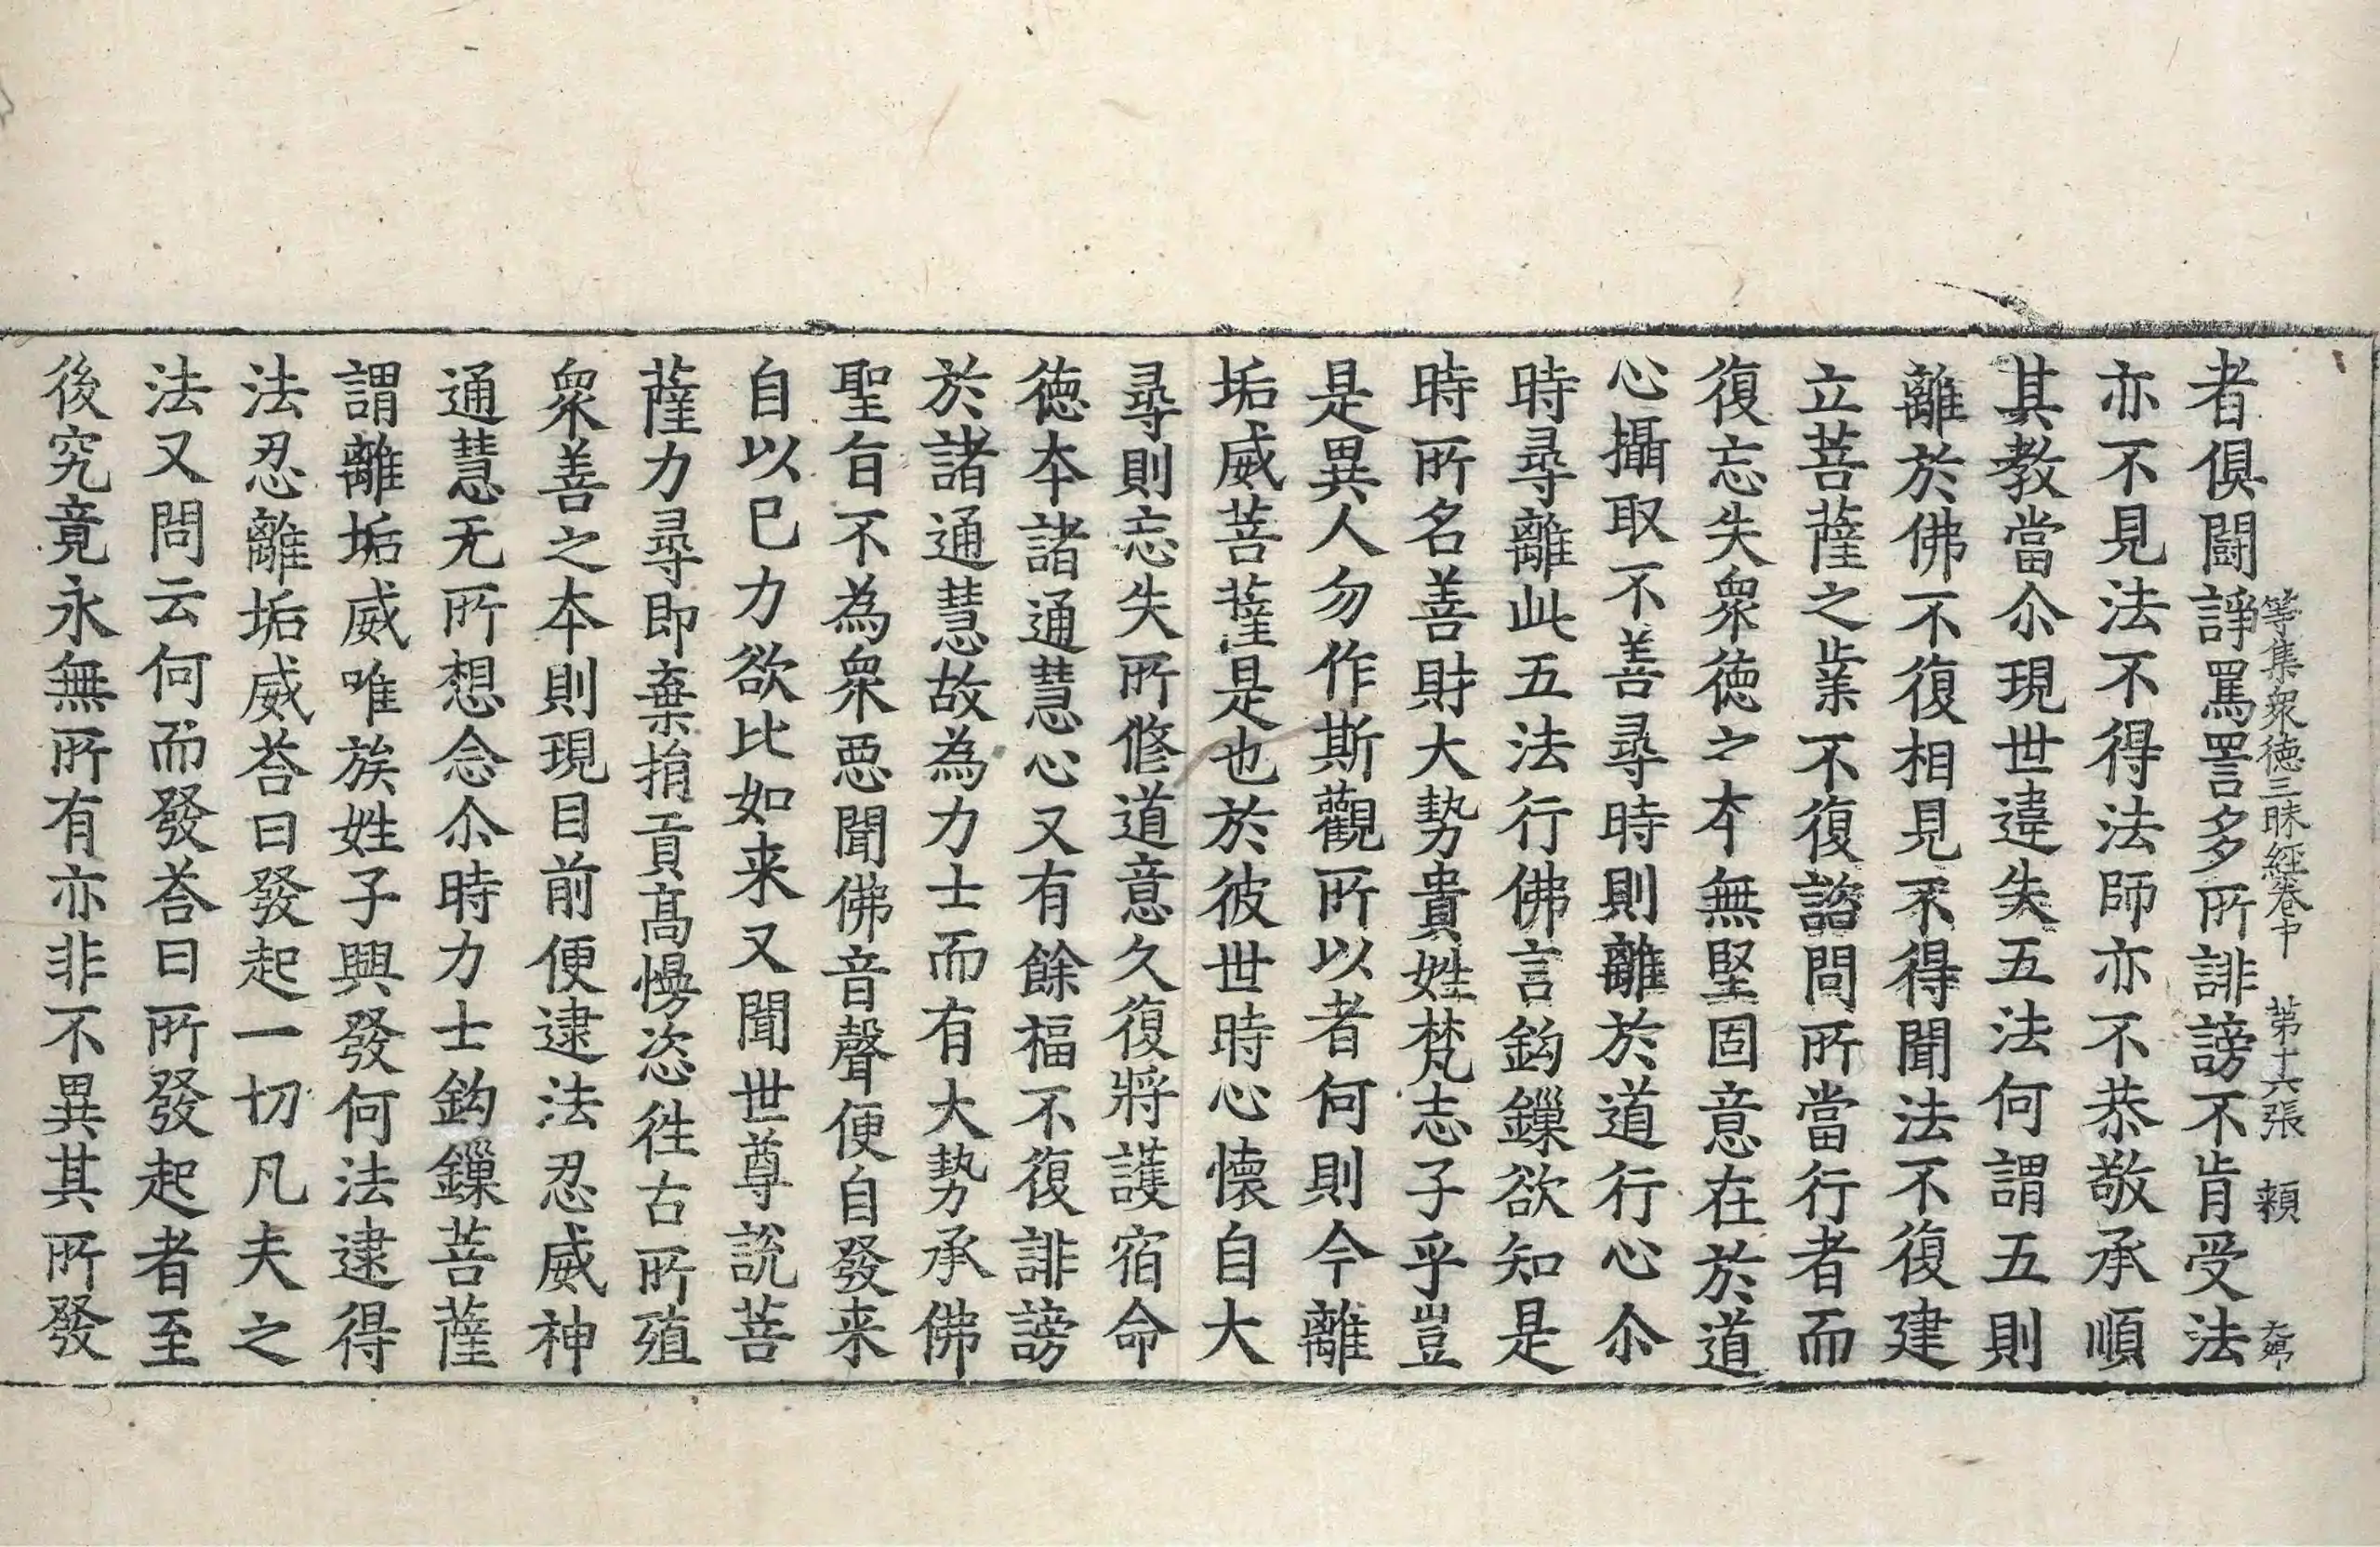 等集衆徳三昧經卷中 第十六張 頼
者俱闘諍罵詈多所誹謗不肯受法
亦不見法不得法師亦不恭敬承順
其教當尒現世違失五法何謂五則
離於佛不復相見不得聞法不復建
立菩薩之業不復諮問所當行者而
復忘失衆徳之本無堅固意在於道
心攝取不善尋時則離於道行心尒
時尋離此五法行佛言鈎鏁欲知是
時所名善財大勢貴姓梵志子乎豈
是異人勿作斯觀所以者何則今離
垢威菩薩是也於彼世時心懐自大
尋則忘失所修道意久復將護宿命
徳本諸通慧心又有餘福不復誹謗
於諸通慧故為力士而有大勢承佛
聖旨不為衆惡聞佛音聲便自發来
自以已力欲比如来又聞世尊說菩
薩力尋即棄捐貢高慢恣徃古所殖
衆善之本則現目前便逮法忍威神
通慧无所想念尒時力士鈎鏁菩薩
謂離垢威唯族姓子興發何法逮得
法忍離垢威荅曰發起一切凡夫之
法又問云何而發荅曰所發起者至
後究竟永無所有亦非不異其所發